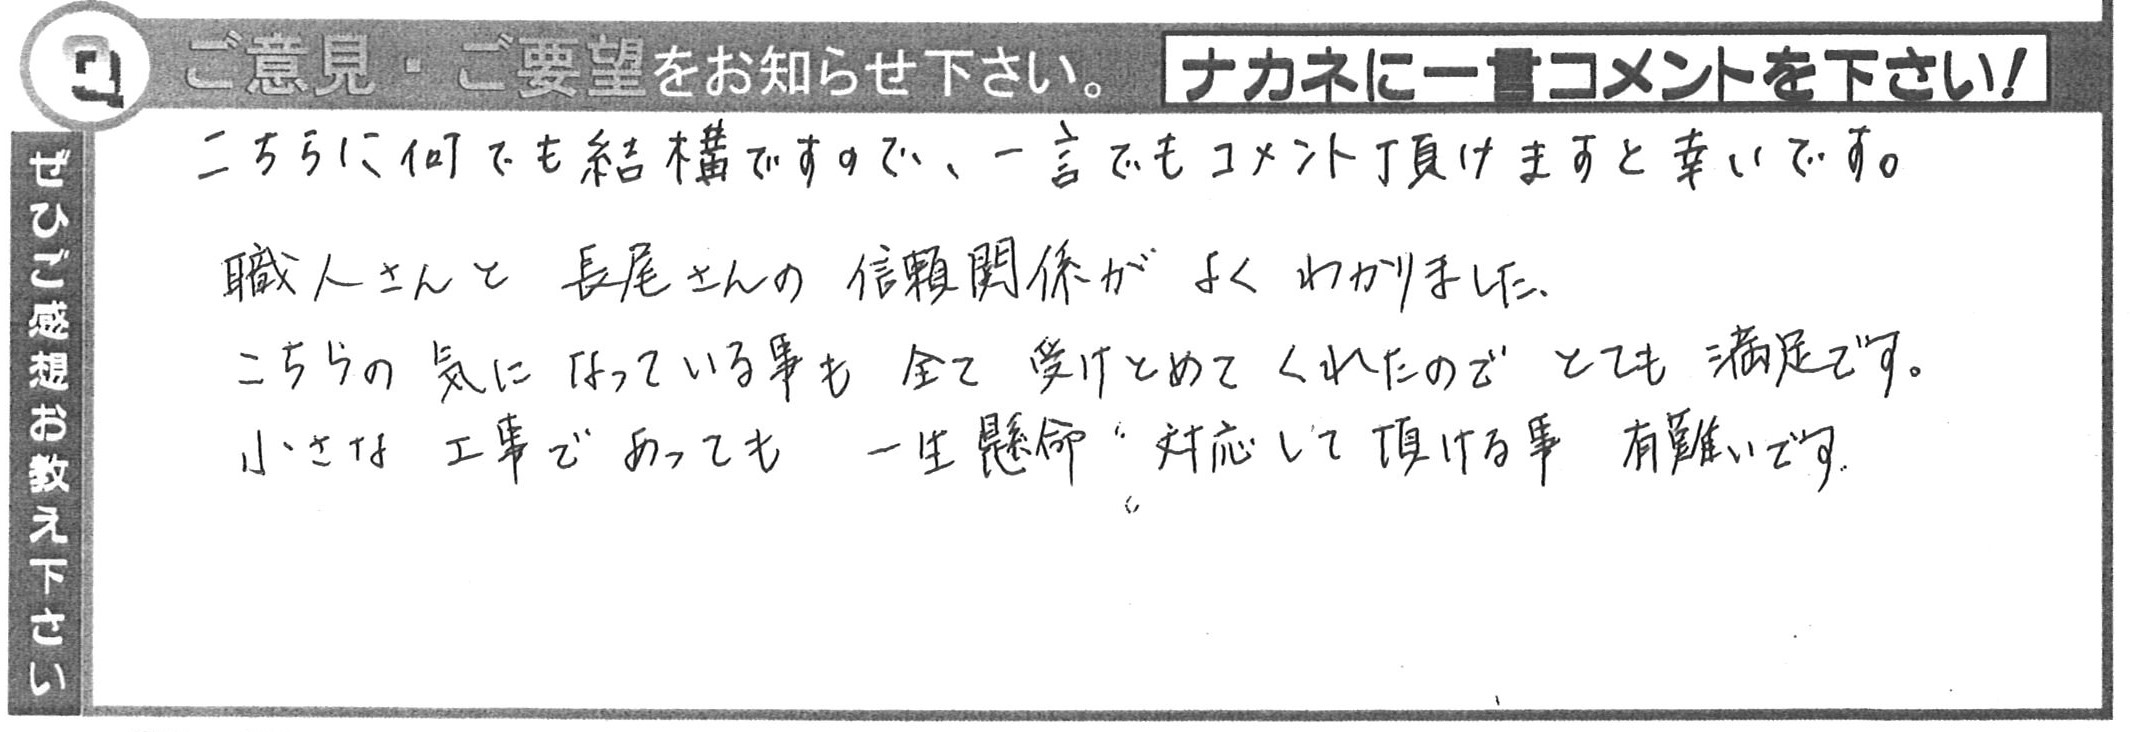 ご意見・ご要望をお知らせ下さい。 ナカネに一言コメントを下さい!
ぜひご感想お教え下さい
こちらに何でも結構ですので、一言でもコメント頂けますと幸いです。
職人さんと 長尾さんの 信頼関係が よく わかりました、
こちらの 気に なっている事も 全て 受けとめて くれたので とても 満足です。
小さな 工事で あっても 一生懸命 対応して 頂ける事 有難いです.